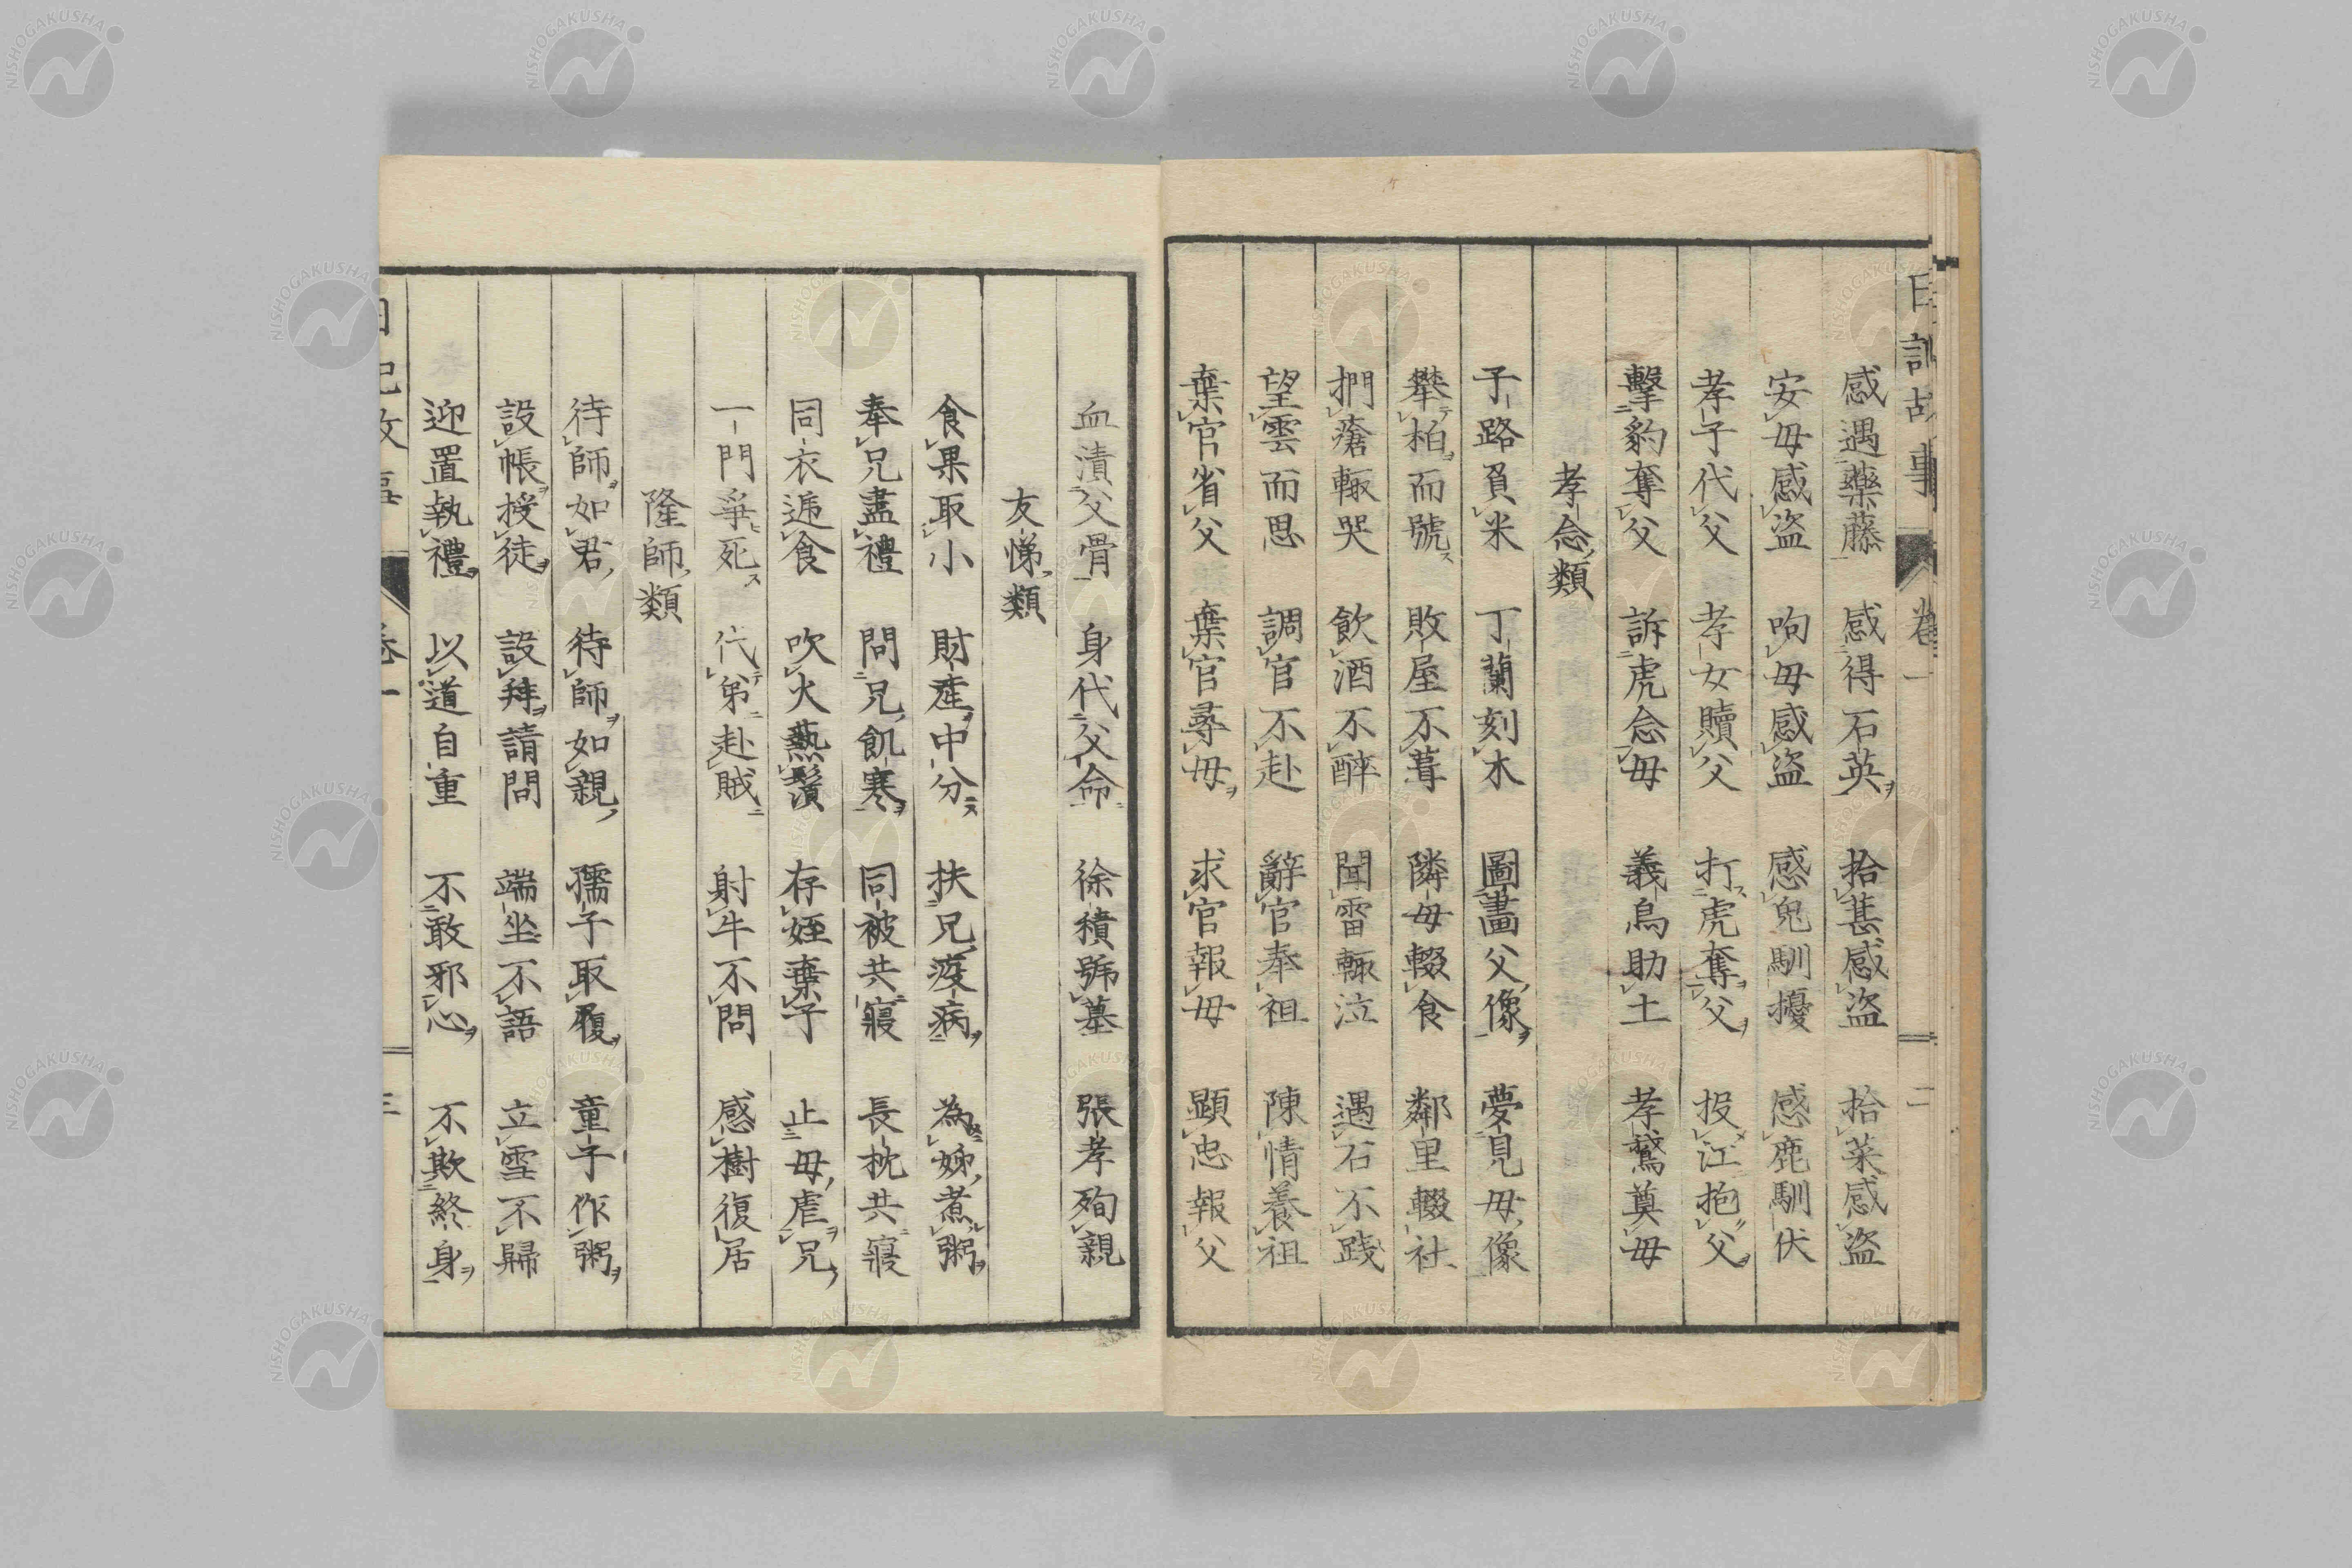 感遇藥藤 感得石英 拾葚感盜 拾菜感盜
安母感盜 呴母感盜 感兔馴擾 感鹿馴伏
孝子代父 孝女贖父 打虎奪父 投江抱父
擊豹奪父 訴虎念母 義烏助土 孝鵞奠母
孝念類
子路負米 丁蘭刻木 圖畫父像 夢見母像
攀柏而號 敗屋不葺 隣母輟食 鄰里輟社
捫瘡輙哭 飲酒不醉 聞雷輙泣 遇石不踐
望雲而思 調官不赴 辭官奉祖 陳情養祖
棄官省父 棄官尋母 求官報母 顕忠報父
血漬父骨 身代父命 徐積號墓 張孝殉親
友悌類
食果取小 財產中分 扶兄疫病 為姊煮粥
奉兄盡禮 問兄飢寒 同被共寢 長枕共寢
同衣遞食 吹火熱鬚 存姪棄子 止母虐兄
一門爭死 代弟赴賊 射牛不問 感樹復居
隆師類
待師如君 待師如親 孺子取履 童子作粥
設帳授徒 設拜請問 端坐不語 立雪不歸
迎置執禮 以道自重 不敢邪心 不欺終身
日記故事 卷一 三
NISHOGAKUSHA